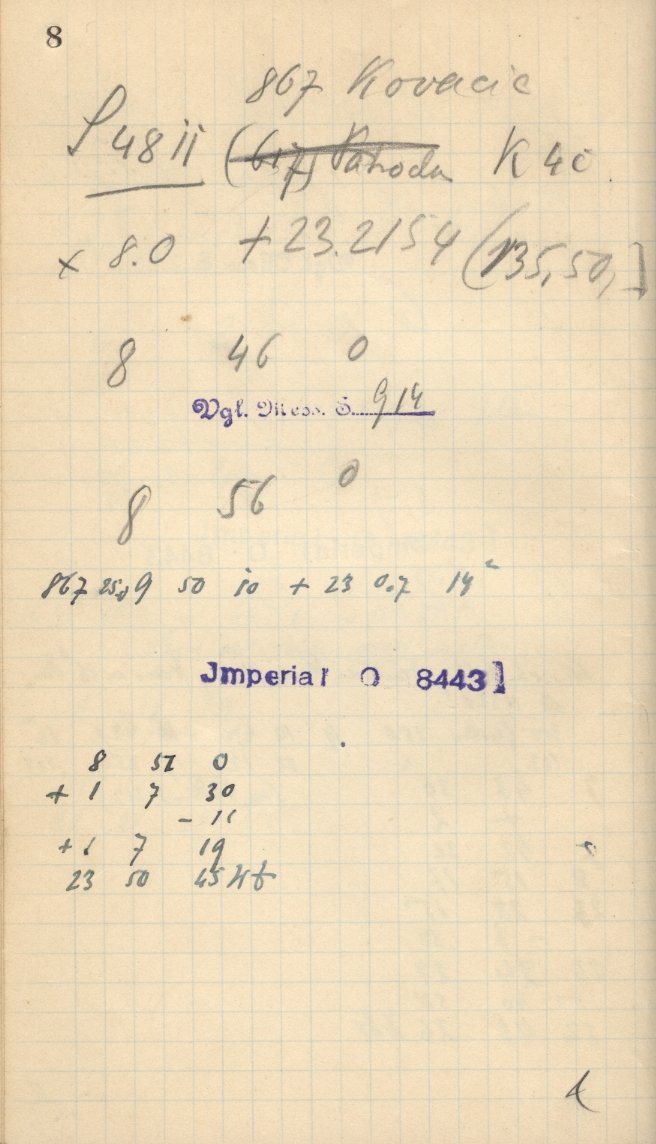 8
867 Kovacic
P 48 ii (617) Pahodu K 40
x 8.0 + 23.2154 (135,50,]
8 46 0
Vgl. Mess. S. 914
8 56 0
867 25,8 9 50 10 + 23 0.7 14
Jmperial O 8443]
8 51 0
+ 1 7 30
- 11
+ 1 7 19
23 50 45